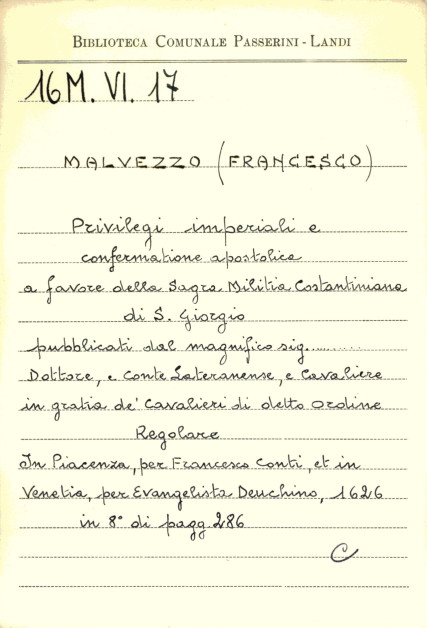 BIBLIOTECA COMUNALE PASSERINI - LANDI
16 M. VI. 17
MALVEZZO (FRANCESCO)
Privilegi imperiali e
confermatione apostolica
a favore della Sagra Militia Costantiniana
di S. Giorgio
pubblicati dal magnifico sig...........
Dottore, e Conte Lateranense, e Cavaliere
in gratia de' Cavalieri di detto Ordine
Regolare
In Piacenza, per Francesco Conti, et in
Venetia, per Evangelista Deuchino, 1626
in 8° di pagg. 286
C